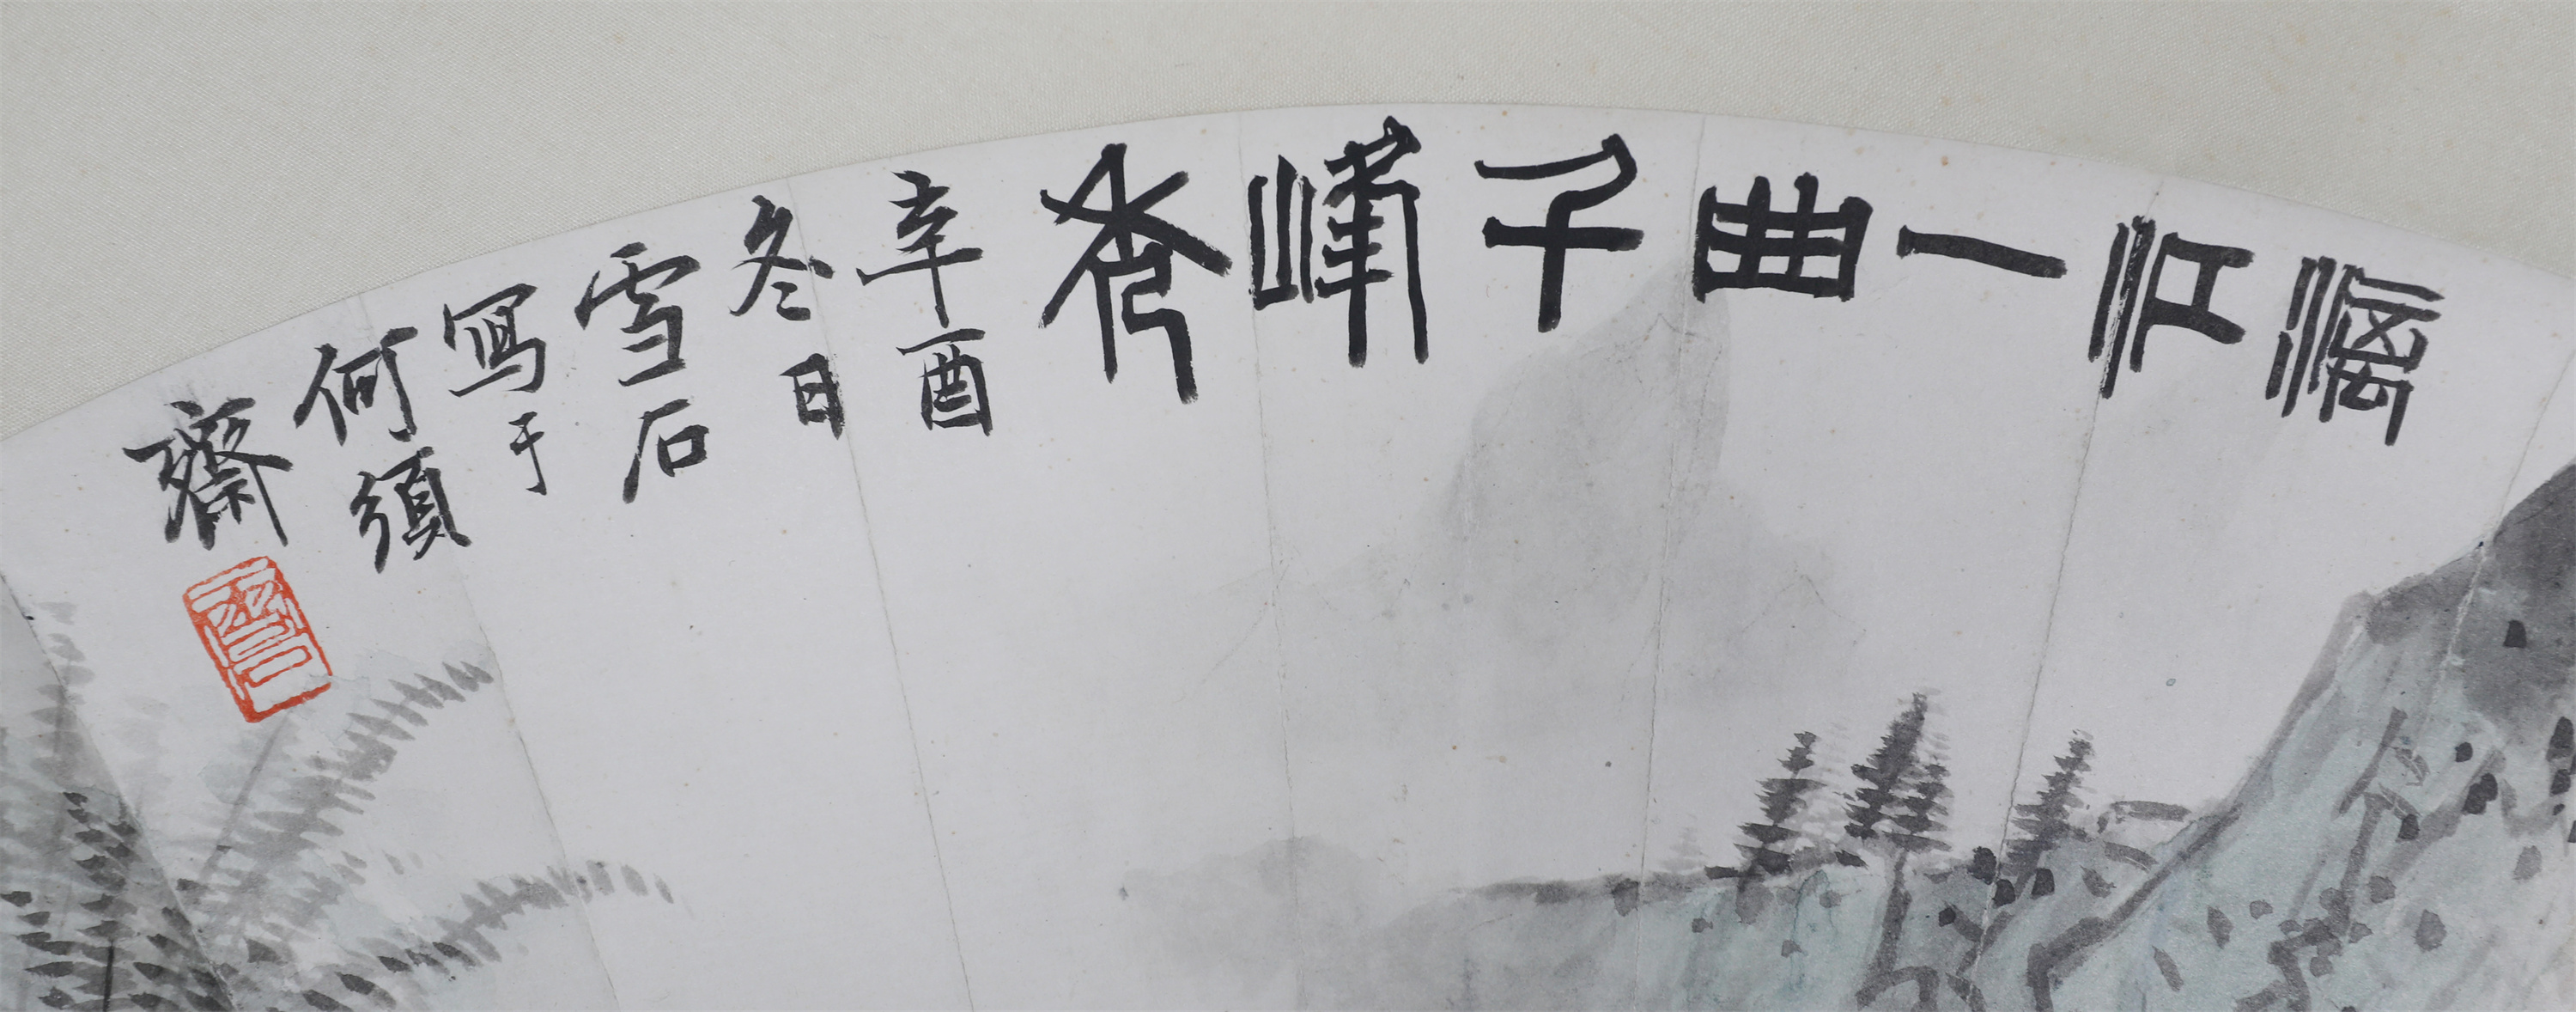 灕江一曲千峰秀
辛酉
冬日
雪石
寫于
何須
齋